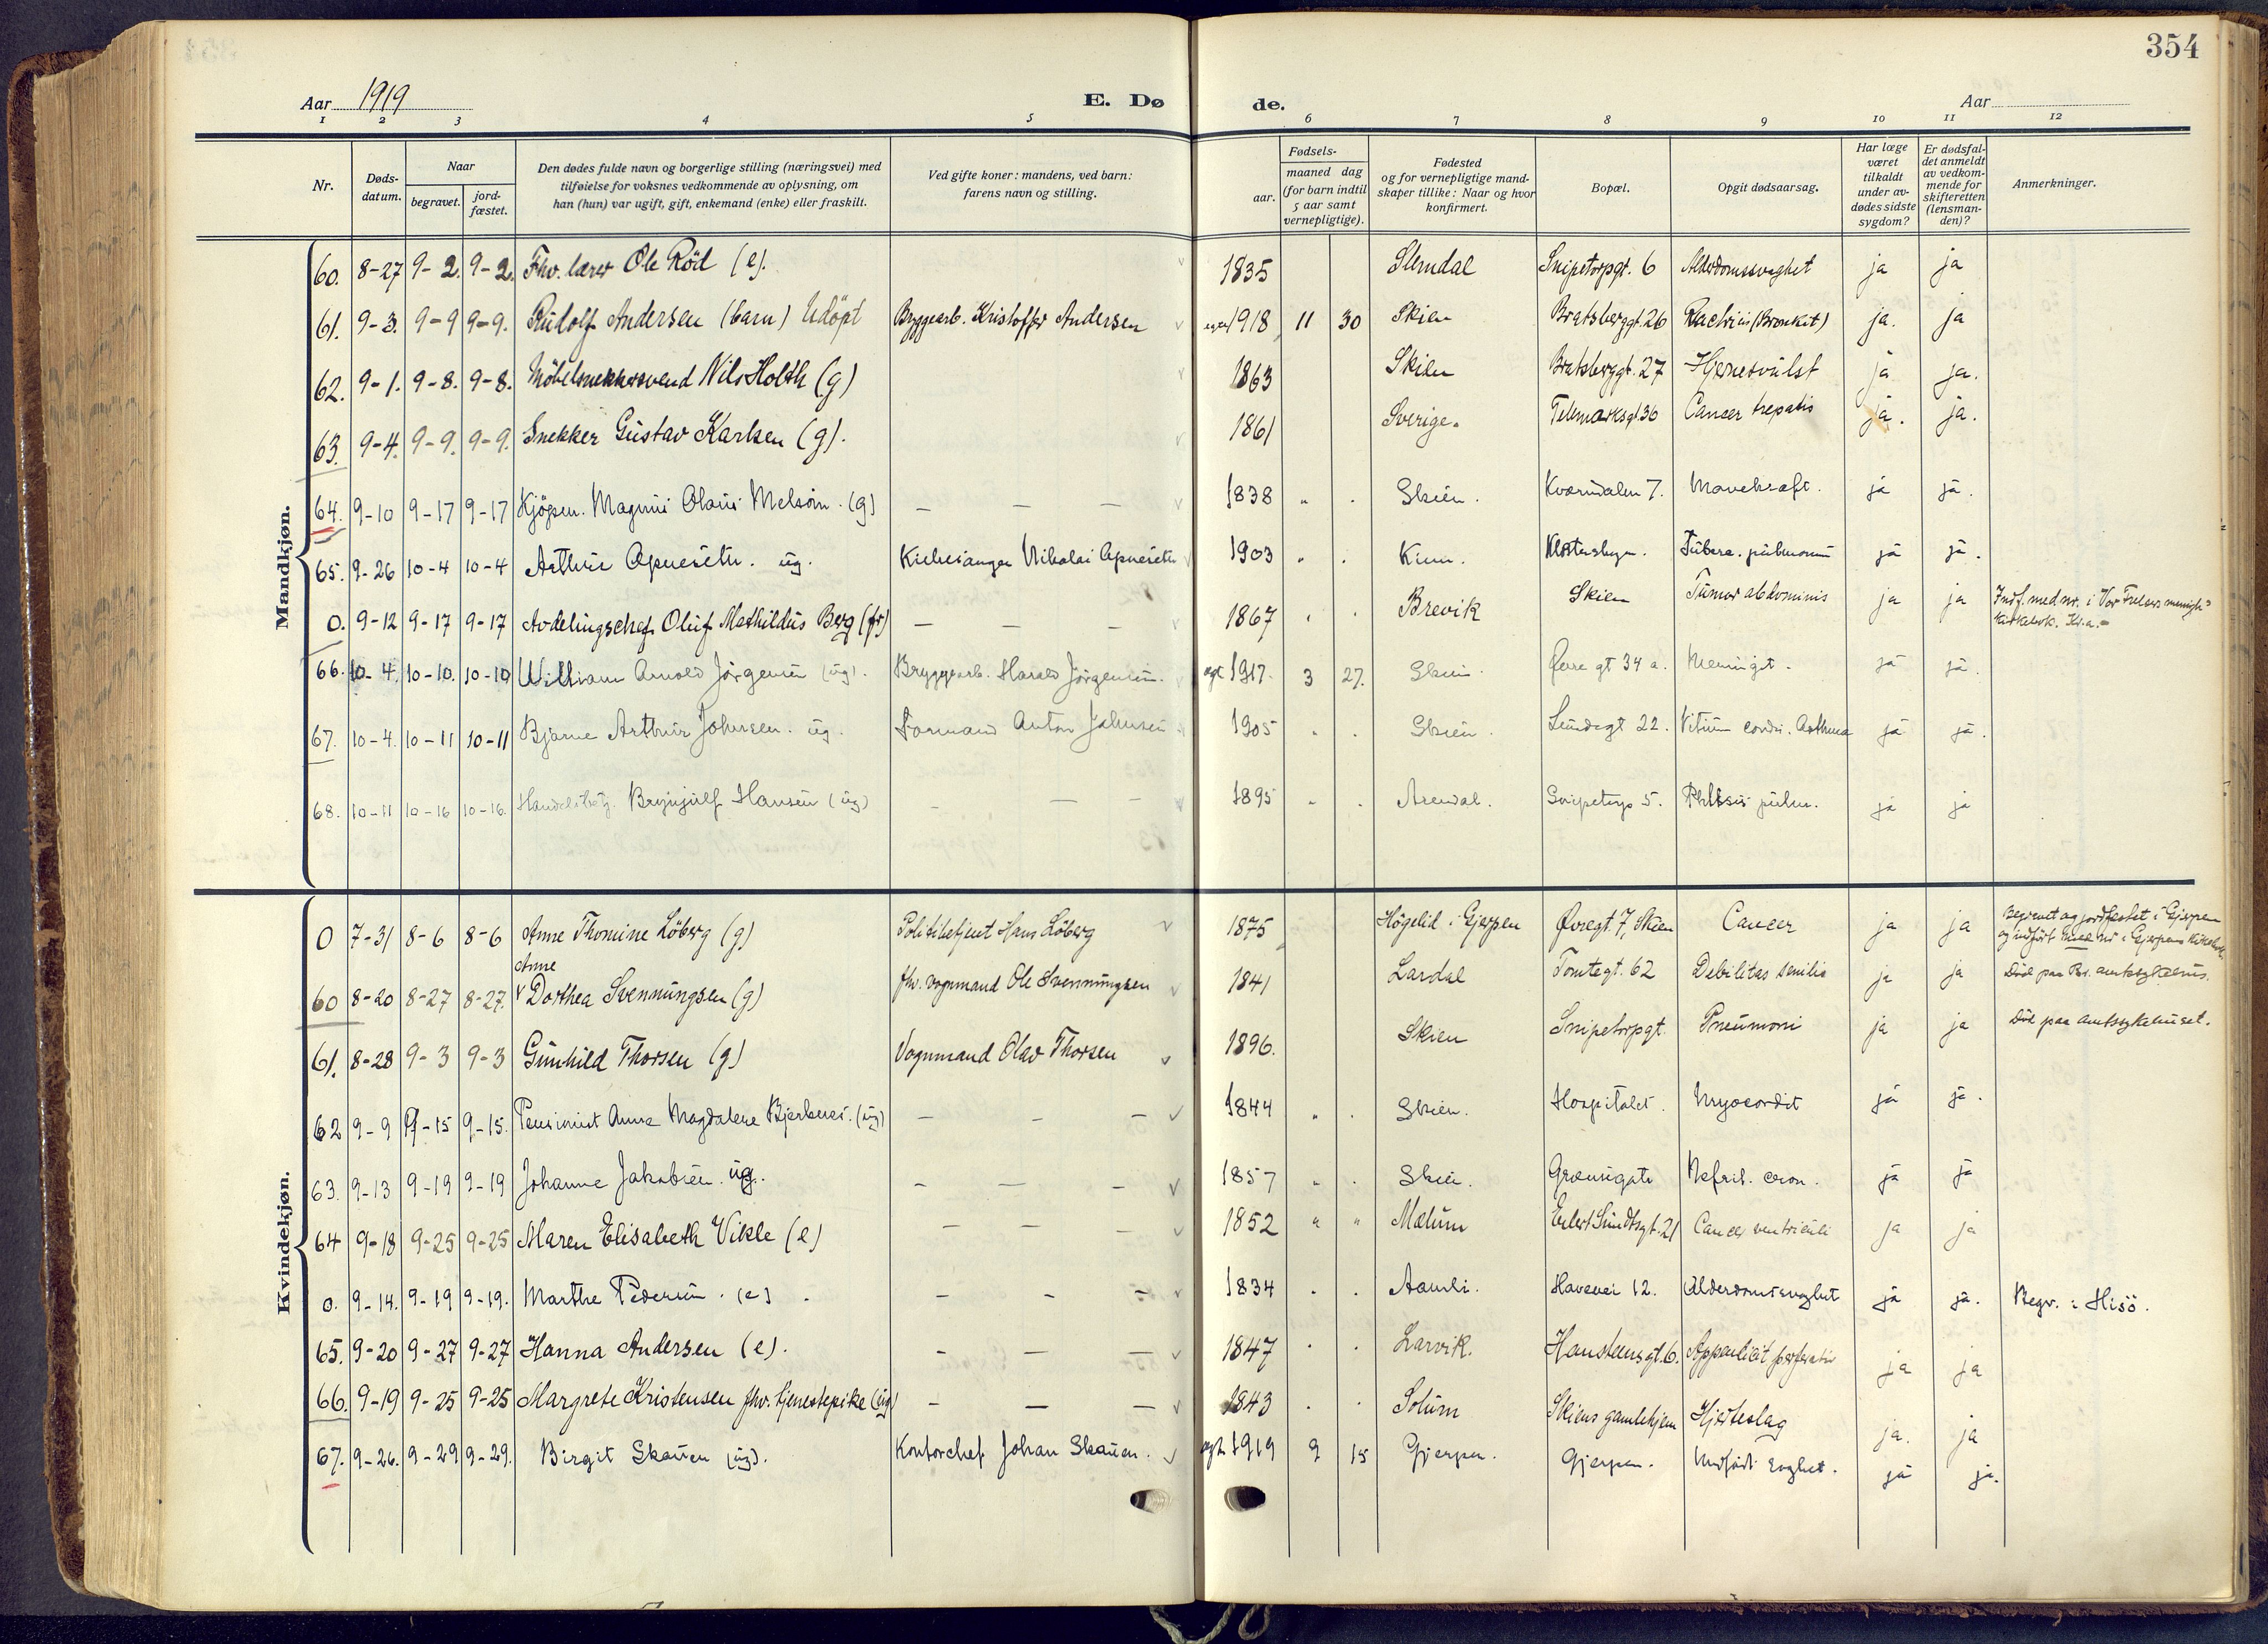 354
Aar 1919 E. Dø de. Aar
1 2 3 4 5 6 7 8 9 10 11 12
Nr. Døds-datum. Naar begravet. jord-fæstet. Den dødes fulde navn og borgerlige stilling (næringsvei) med tilføielse for voksnes vedkommende av oplysning, om han (hun) var ugift, gift, enkemand (enke) eller fraskilt. Ved gifte koner: mandens, ved barn: farens navn og stilling. Fødsels- aar. maaned dag (for barn indtil 5 aar samt vernepligtige). Fødested og for vernepligtige mandskaper tillike: Naar og hvor konfirmert. Bopæl. Opgit dødsaarsag. Har læge været tilkaldt under avdødes sidste sygdom? Er dødsfaldet anmeldt av vedkommende for skifteretten (lensmanden)? Anmerkninger.
Mandkjøn.
60. 8-27 9-2. 9-2. Fhv. lærer Ole Röd (e). 1835 Slemdal Snipetorpgt. 6 Alderdomssvaghet ja ja
61. 9-3. 9-9 9-9. Rudolf Andersen (barn) Udöpt Bryggearb. Kristoffer Andersen 1918 11 30 Skien Bratsberggt. 26 (Bronkit) ja. ja
62. 9-1. 9-8. 9-8. Möbelsnekkersvend Nils Holth (g) 1863 Skien Bratsberggt. 27 Hjernesvulst ja ja.
63. 9-4. 9-9. 9-9. Snekker Gustav Karlsen (g). 1861 Sverige. Telemarksgt. 36 Cancer hepatis ja. ja.
64. 9-10 9-17 9-17 Kjöpm. Magnus Olaus Melsom. (g) — — — 1838 " . Skien. Kværndalen 7. Mavekræft. ja ja.
65. 9-26 10-4 10-4 Arthur Apnesth. ug. Kirkesanger Nikolai Apnesth 1903 " . Klosterskogen. Tuberc. pulmonum ja ja.
0. 9-12 9-17 9-17 Avdelingschef Oluf Mathildus Berg (fr) — — — 1867 . . Brevik Skien Tumor abdominis ja ja Indf. med nr. i Vor Frelsers menigh= kirkebok. Kr.a.=
66. 10-4. 10-10. 10-10 William Arnold Jörgensen (ug). Bryggearb. Harald Jörgensen. egt 1917. 3 27. Skien. Övre gt 34 a. Meningit. ja ja.
67. 10-4. 10-11 10-11 Bjarne Arthur Johnsen. ug. Formand Anton Johnsen 1905 . . Skien. Lundegt 22. Vitium cordis. Asthma ja ja.
68. 10-11 10-16 10-16. Handelsbetj. Brynjulf Hansen (ug) — — — 1895 " . Arendal. Snipetorp 5. Phthisis pulm. ja ja
Kvindekjøn.
0 7-31 8-6 8-6 Anne Thomine Löberg (g) Politibetjent Hans Löberg 1875 Högelid i Gjerpen Øvregt. 7, Skien Cancer ja ja Begravet og jordfæstet i Gjerpen og indført med nr i Gjerpens kirkebok.
Anne
60 8-20 8-27 8-27. Dorthea Svennungsen (g) fhv. vognmand Ole Svennungsen 1841 Lardal Tomtegt. 62 Debilitas senilis ja ja Död paa Br. amtssykehus.
61. 8-28 9-3 9-3 Gunhild Thorsen (g) Vognmand Olav Thorsen 1896. Skien Snipetorpgt. Pneumoni ja ja Död paa amtssykehuset.
62 9-9 9-15 9-15. Pensionist Anna Magdalene Bjerknes. (ug) — - — 1844 " . Skien. Hospitalet. Myocordit ja ja.
63. 9-13 9-19 9-19 Johanne Jakobsen. ug. - — - 1857 " . Skien. Grænsegate Nefrit. cron. ja ja
64 9-18 9-25 9-25 Maren Elisabeth Vikle (e) — — — 1852 " " Mælum Eilert Sundtsgt. 21 Cancer ventriculi ja ja
0. 9-14. 9-19 9-19. Marthe Pedersen. (e) — - — 1834 . . Aamli. Havevei 12. Alderdomssvaghet ja ja. Begr. i Hisö.
65. 9-20 9-27 9-27 Hanna Andersen (e). - — — 1847 . . Larvik. Hansteensgt. 6. Appendicit perforativ ja ja
66. 9-19 9-25 9-25 Margrete Kristensen fhv. tjenestepike (ug) - — — 1843 . . Solum Skiens gamlehjem Hjerteslag ja. ja
67. 9-26. 9-29 9-29. Birgit Skauen (ug). Kontorchef Johan Skauen. egt. 1919 9 15 Gjerpen. Gjerpen. Medfödt svaghet. ja ja.